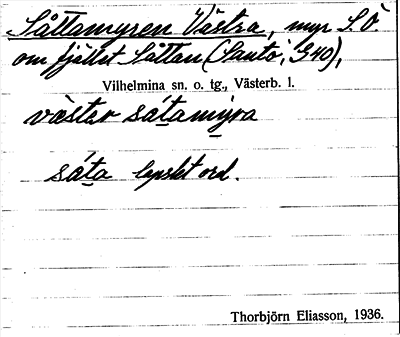 Såttamyren Västra, myr S.Ö.
om fjället Såttan (Santo, G40),
Vilhelmina sn. o. tg., Västerb. l.
väster sátamýra
sáta lapskt ord.
Thorbjörn Eliasson, 1936.